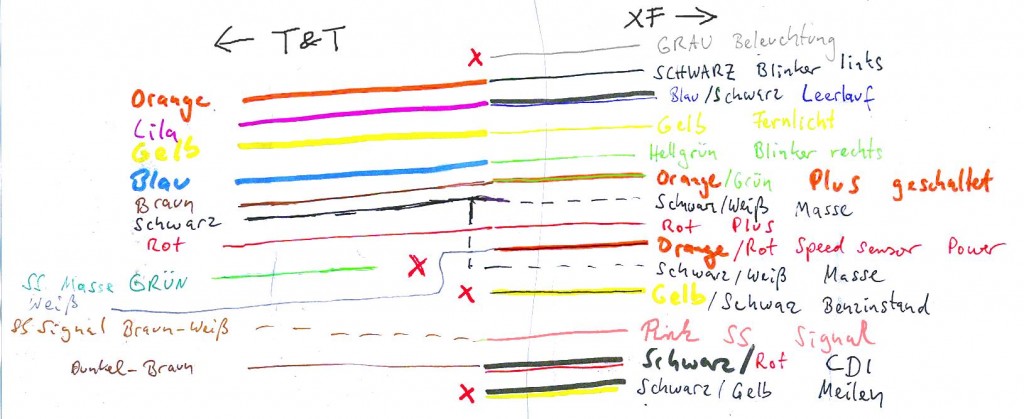 ← T&T XF →
x GRAU Beleuchtung
SCHWARZ Blinker links
Orange Blau/Schwarz Leerlauf
Lila Gelb Fernlicht
Gelb Hellgrün Blinker rechts
Blau Orange/Grün Plus geschaltet
Braun Schwarz/Weiß Masse
Schwarz Rot Plus
Rot Orange/Rot Speed Sensor Power
x Schwarz/Weiß Masse
SS Masse GRÜN
Weiß x Gelb/Schwarz Benzinstand
SS Signal Braun-Weiß Pink SS Signal
Dunkel-Braun Schwarz/Rot CDI
x Schwarz/Gelb Meilen